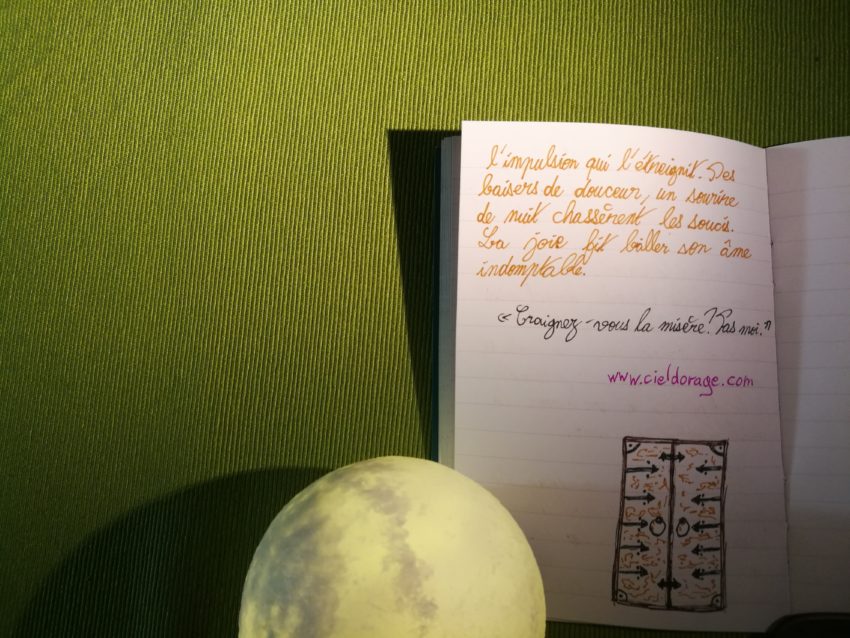 l'impulsion qui l'étreignit. Des
baisers de douceur, un sourire
de nuit chassèrent les soucis.
La joie fit bâller son âme
indomptable.
« Craignez-vous la misère? Pas moi. »
www.cieldorage.com